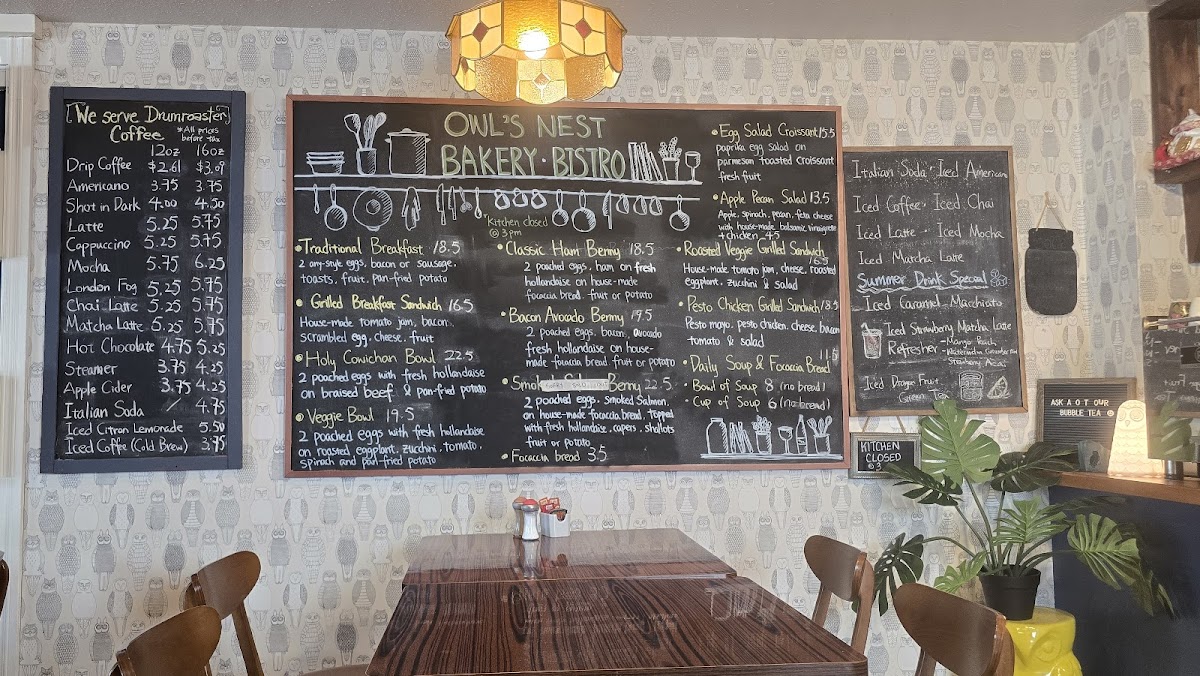 [We serve Drumroaster]
Coffee *All prices
before tax
12oz 16oz
Drip Coffee $2.61 $3.09
Americano 3.75 3.75
Shot in Dark 4.00 4.50
Latte 5.25 5.75
Cappuccino 5.25 5.75
Mocha 5.75 6.25
London Fog 5.25 5.75
Chai Latte 5.25 5.75
Matcha Latte 5.25 5.75
Hot Chocolate 4.75 5.25
Steamer 3.75 4.25
Apple Cider 3.75 4.25
Italian Soda / 4.75
Iced Citron Lemonade 5.50
Iced Coffee (Cold Brew) 3.75
OWL'S NEST
BAKERY · BISTRO
*Kitchen closed
@ 3pm
• Traditional Breakfast 18.5
2 any-style eggs, bacon or sausage,
toasts, fruit, pan-fried potato
• Grilled Breakfast Sandwich 16.5
House-made tomato jam, bacon,
scrambled egg, cheese, fruit
• Holy Cowichan Bowl 22.5
2 poached eggs with fresh hollandaise
on braised beef & pan-fried potato
• Veggie Bowl 19.5
2 poached eggs with fresh hollandaise
on roasted eggplant, zucchini, tomato,
spinach and pan-fried potato
• Classic Ham Benny 18.5
2 poached eggs, ham on fresh
hollandaise on house-made
focaccia bread, fruit or potato
• Bacon Avocado Benny 19.5
2 poached eggs, bacon, avocado
fresh hollandaise on house-
made focaccia bread fruit or potato
• Benny 22.5
2 poached eggs, smoked Salmon,
on house-made focaccia bread, topped
with fresh hollandaise, capers, shallots
fruit or potato
• Focaccia bread 3.5
• Egg Salad Croissant 15.5
paprika egg salad on
parmesan toasted croissant
fresh fruit
• Apple Pecan Salad 13.5
Apple, spinach, pecan, feta cheese
with house-made balsamic vinaigrette
+ chicken 4.5
• Roasted Veggie Grilled Sandwich
16.5
House-made tomato jam, cheese, roasted
eggplant, zucchini & salad
• Pesto Chicken Grilled Sandwich 18.5
Pesto mayo, pesto chicken, cheese, bacon
tomato & salad
• Daily Soup & Focaccia Bread
11.5
• Bowl of Soup 8 (no bread)
• Cup of Soup 6 (no bread)
Italian Soda · Iced Americano
Iced Coffee · Iced Chai
Iced Latte · Iced Mocha
Iced Matcha Latte
Summer Drink Special
Iced Caramel Macchiato
Iced Strawberry Matcha Latte
Refresher - Mango Peach
- Strawberry Acai
Iced Dragon Fruit
Green Tea
KITCHEN
CLOSED
@ 3
ASK ABOUT OUR
BUBBLE TEA